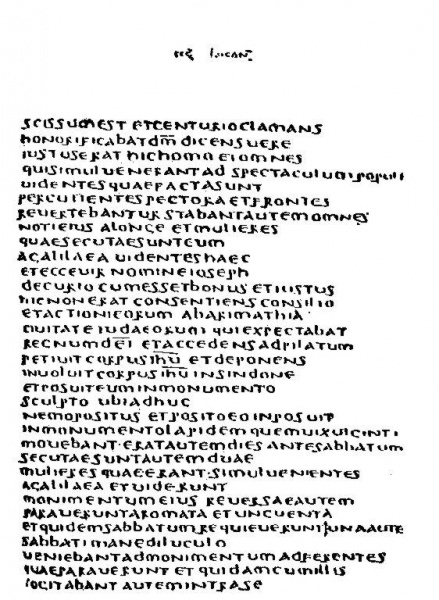 sec lucan
SCISSUM EST ET CENTURIO CLAMANS
HONORIFICABAT DM DICENS UERE
IUSTUS ERAT HIC HOMO ET OMNES
QUI SIMUL UENERANT AD SPECTACULUM POPULI
UIDENTES QUAE FACTA SUNT
PERCUTIENTES PECTORA ET FRONTES
REUERTEBANTUR STABANT AUTEM OMNES
NOTI EIUS A LONGE ET MULIERES
QUAE SECUTAE SUNT EUM
A GALILAEA UIDENTES HAEC
ET ECCE UIR NOMINE IOSEPH
DECURIO CUM ESSET BONUS ET IUSTUS
HIC NON ERAT CONSENTIENS CONSILIO
ET ACTIONI EORUM AB ARIMATHIA
CIUITATE IUDAEORUM QUI EXPECTABAT
REGNUM DEI ET ACCEDENS AD PILATUM
PETIUIT CORPUS IHU ET DEPONENS
INUOLUIT CORPUS IHU IN SINDONE
ET POSUIT EUM IN MONUMENTO
SCULPTO UBI ADHUC
NEMO POSITUS ET POSITO EO INPOSUIT
IN MONUMENTO LAPIDEM QUEM UIX UIGINTI
MOUEBANT · ERAT AUTEM DIES ANTE SABBATUM
SECUTAE SUNT AUTEM DUAE
MULIERES QUAE ERANT · SIMUL UENIENTES
A GALILAEA ET UIDERUNT
MONIMENTUM EIUS REUERSAE AUTEM
PARAUERUNT AROMATA ET UNGUENTA
ET QUIDEM SABBATUM REQUIEUERUNT UNA AUTE
SABBATI MANE DILUCULO
UENIEBANT AD MONIMENTUM ADFERENTES
QUAE PARAUERUNT ET QUIDAM CUM ILLIS
COGITABANT AUTEM INTRA SE